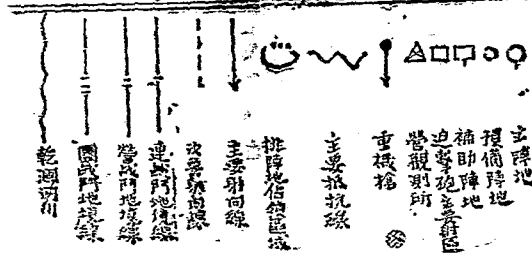 主陣地
預備陣地
補助陣地
迫擊砲主要射區
營觀測所
重機槍
主要抵抗線
排陣地佔領區域
主要射向線
次要射向線
連戰鬥地境線
營戰鬥地境線
團戰鬥地境線
乾涸河川